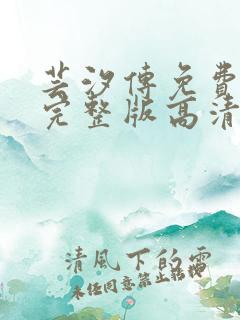 芸汐傳免費
完整版高清
清風下的雪
未經同意禁止轉載